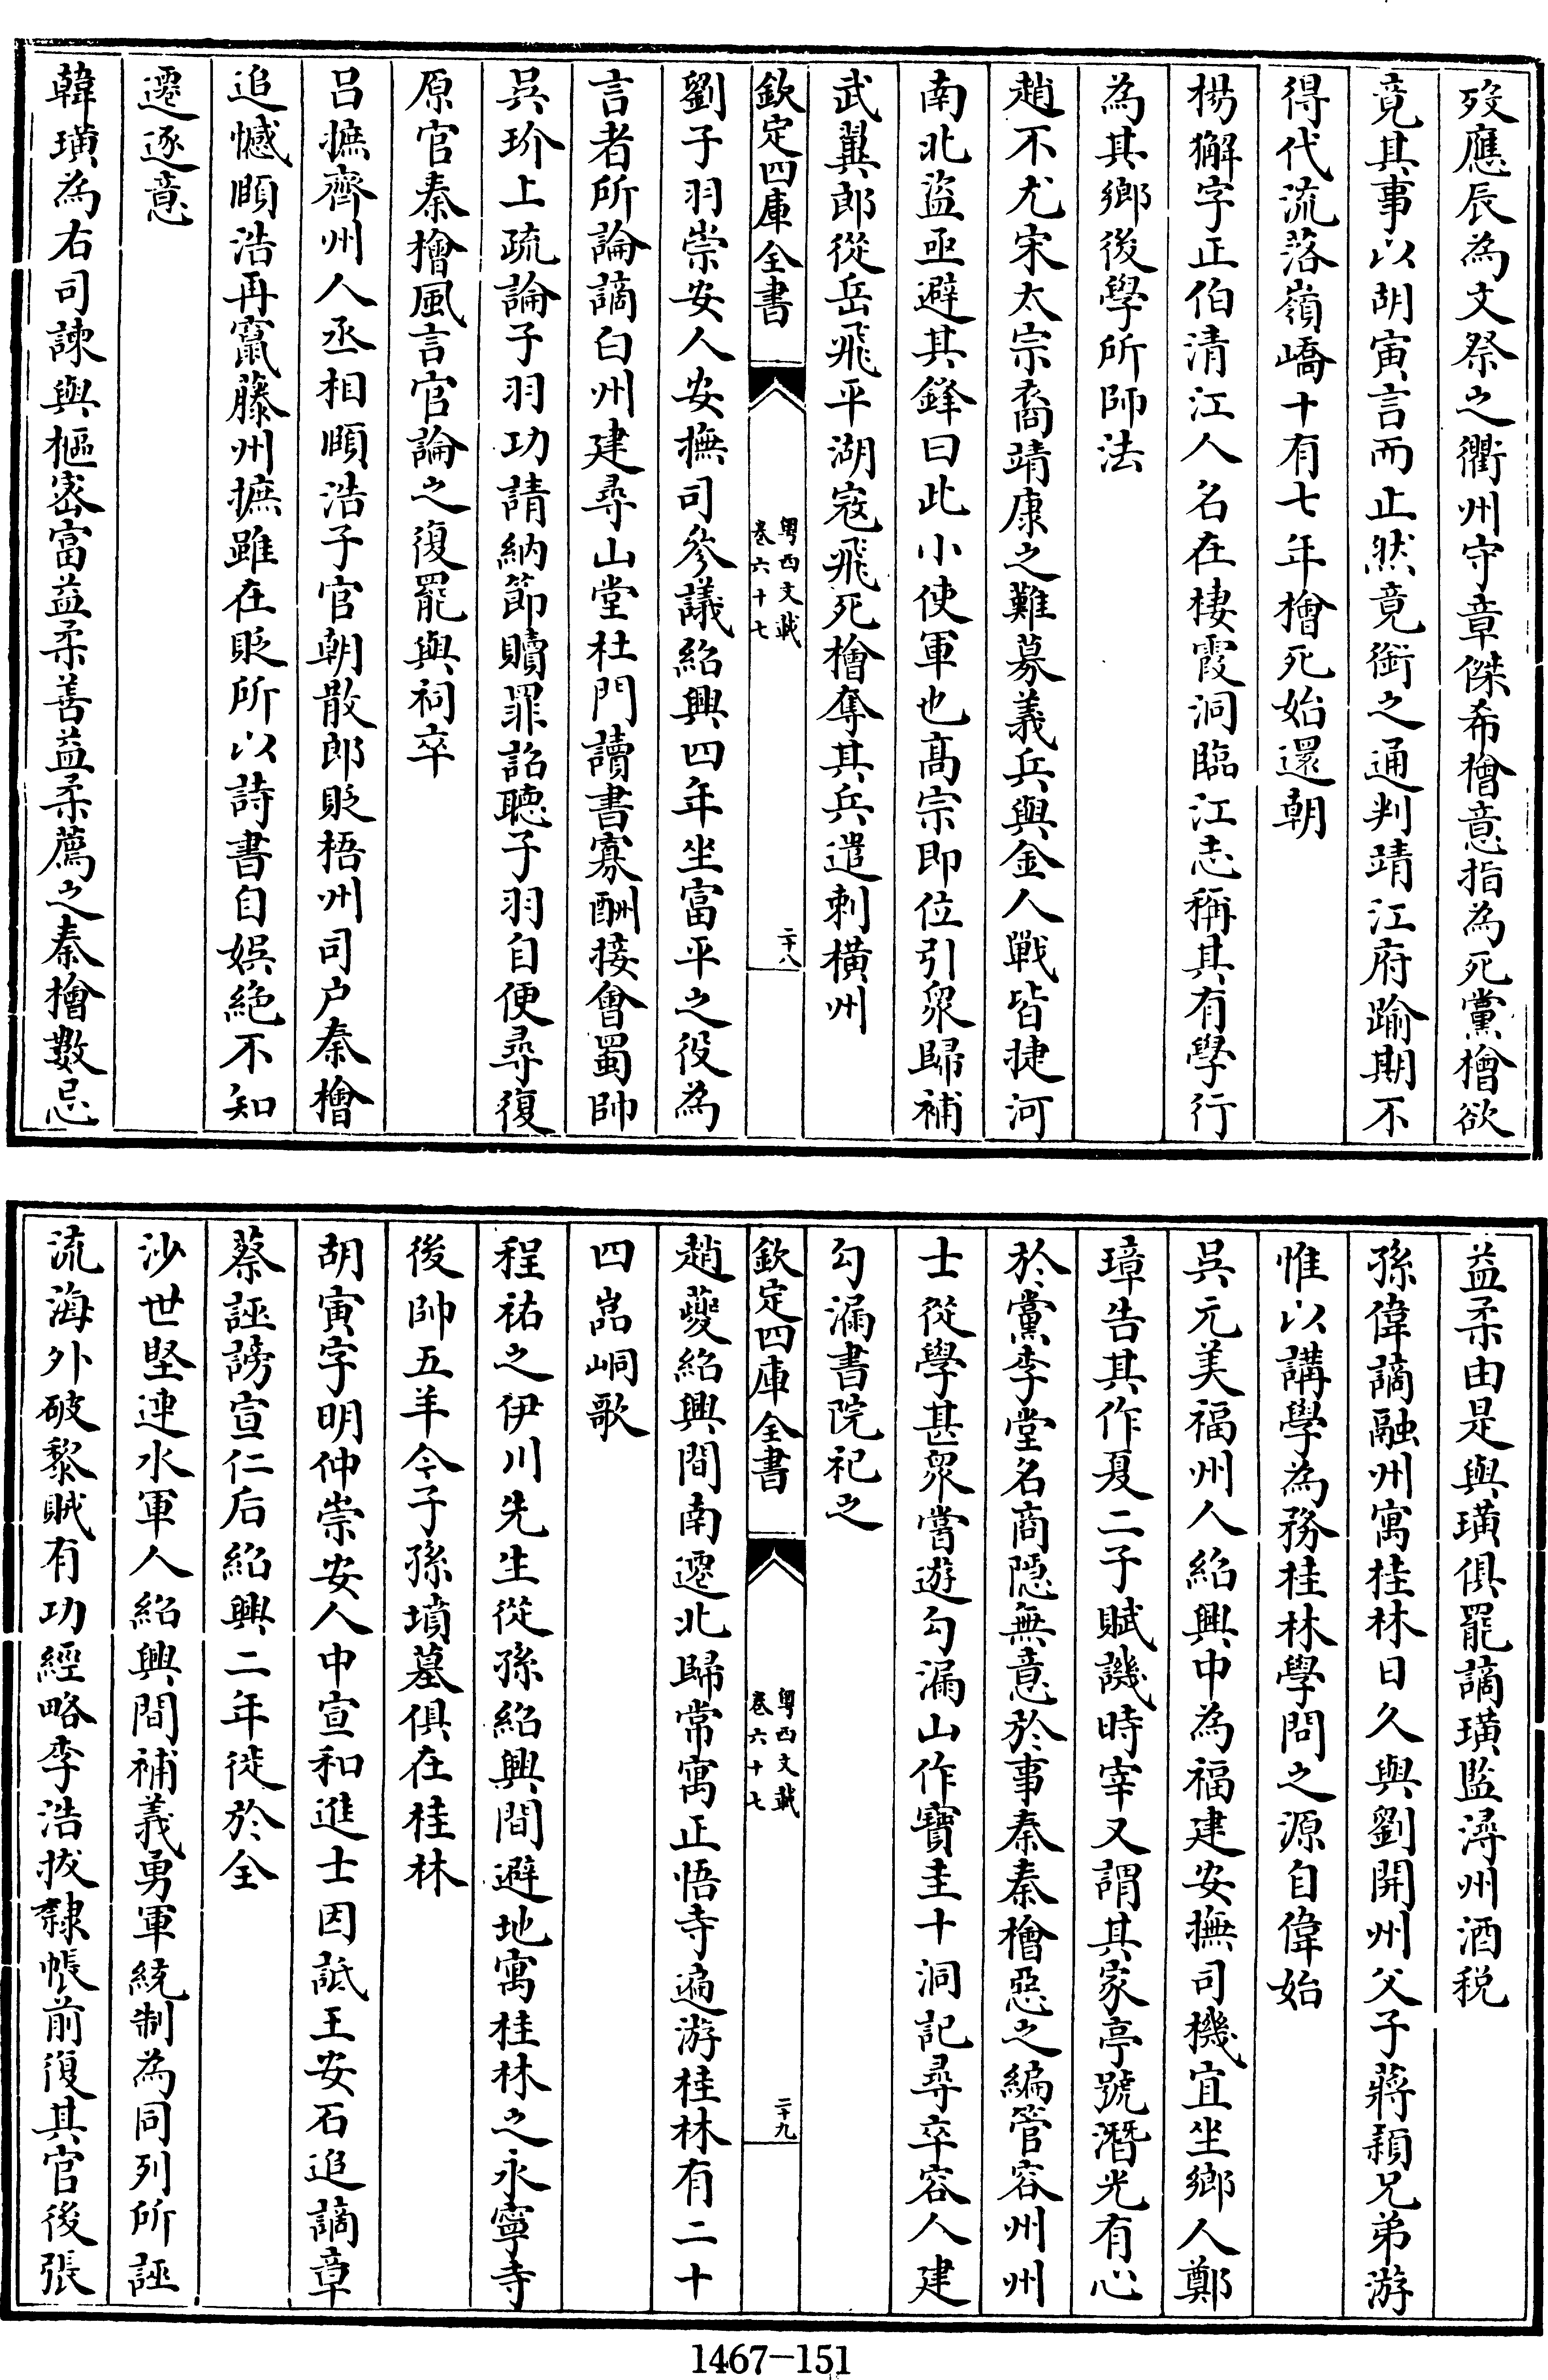 歿應辰為文祭之衢州守章傑希檜意指為死黨檜欲
竟其事以胡寅言而止然竟銜之通判靖江府踰期不
得代流落嶺嶠十有七年檜死始還朝
楊獬字正伯清江人名在棲霞洞臨江志稱其有學行
為其鄉後學所師法
趙不尤宋太宗裔靖康之難募義兵與金人戰皆捷河
南北盜亟避其鋒曰此小使軍也髙宗即位引衆歸補
武翼郎從岳飛平湖寇飛死檜奪其兵遣刺橫州
欽定四庫全書
粤西文載
卷六十七
二十八
劉子羽崇安人安撫司參議紹興四年坐富平之役為
言者所論謫白州建尋山堂杜門讀書寡酬接會蜀帥
吳玠上疏論子羽功請納節贖罪詔聽子羽自便尋復
原官秦檜風言官論之復罷與祠卒
呂摭齊州人丞相頤浩子官朝散郎貶梧州司户秦檜
追憾頤浩再竄藤州摭雖在貶所以詩書自娛絶不知
遷逐意
韓璜為右司諫與樞密富益柔善益柔薦之秦檜數忌
益柔由是與璜俱罷謫璜監潯州酒税
孫偉謫融州寓桂林日久與劉開州父子蔣頴兄弟游
惟以講學為務桂林學問之源自偉始
吳元美福州人紹興中為福建安撫司機宜坐鄉人鄭
瑋告其作夏二子賦譏時宰又謂其家亭號潛光有心
於黨李堂名商隠無意於事秦秦檜惡之編管容州州
士從學甚衆嘗遊勾漏山作寶圭十洞記尋卒容人建
勾漏書院祀之
欽定四庫全書
粤西文載
卷六十七
二十九
趙夔紹興間南遷北歸常寓正悟寺遍游桂林有二十
四嵓峒歌
程祐之伊川先生從孫紹興間避地寓桂林之永寧寺
後帥五羊今子孫墳墓俱在桂林
胡寅字明仲崇安人中宣和進士因詆王安石追謫章
蔡誣謗宣仁后紹興二年徙於全
沙世堅連水軍人紹興間補義勇軍統制為同列所誣
流海外破黎賊有功經略李浩拔隸帳前復其官後張
1467-151